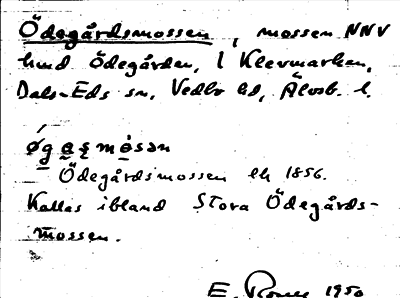 Ödegårdsmossen, mossen NNV
hmd Ödegården, i Klevmarken,
Dals-Eds sn, Vedbo hd, Älvsb. l.
Ödegårdsmossen lk 1856.
Kallas ibland Stora Ödegårds-
mossen.
E. 1950